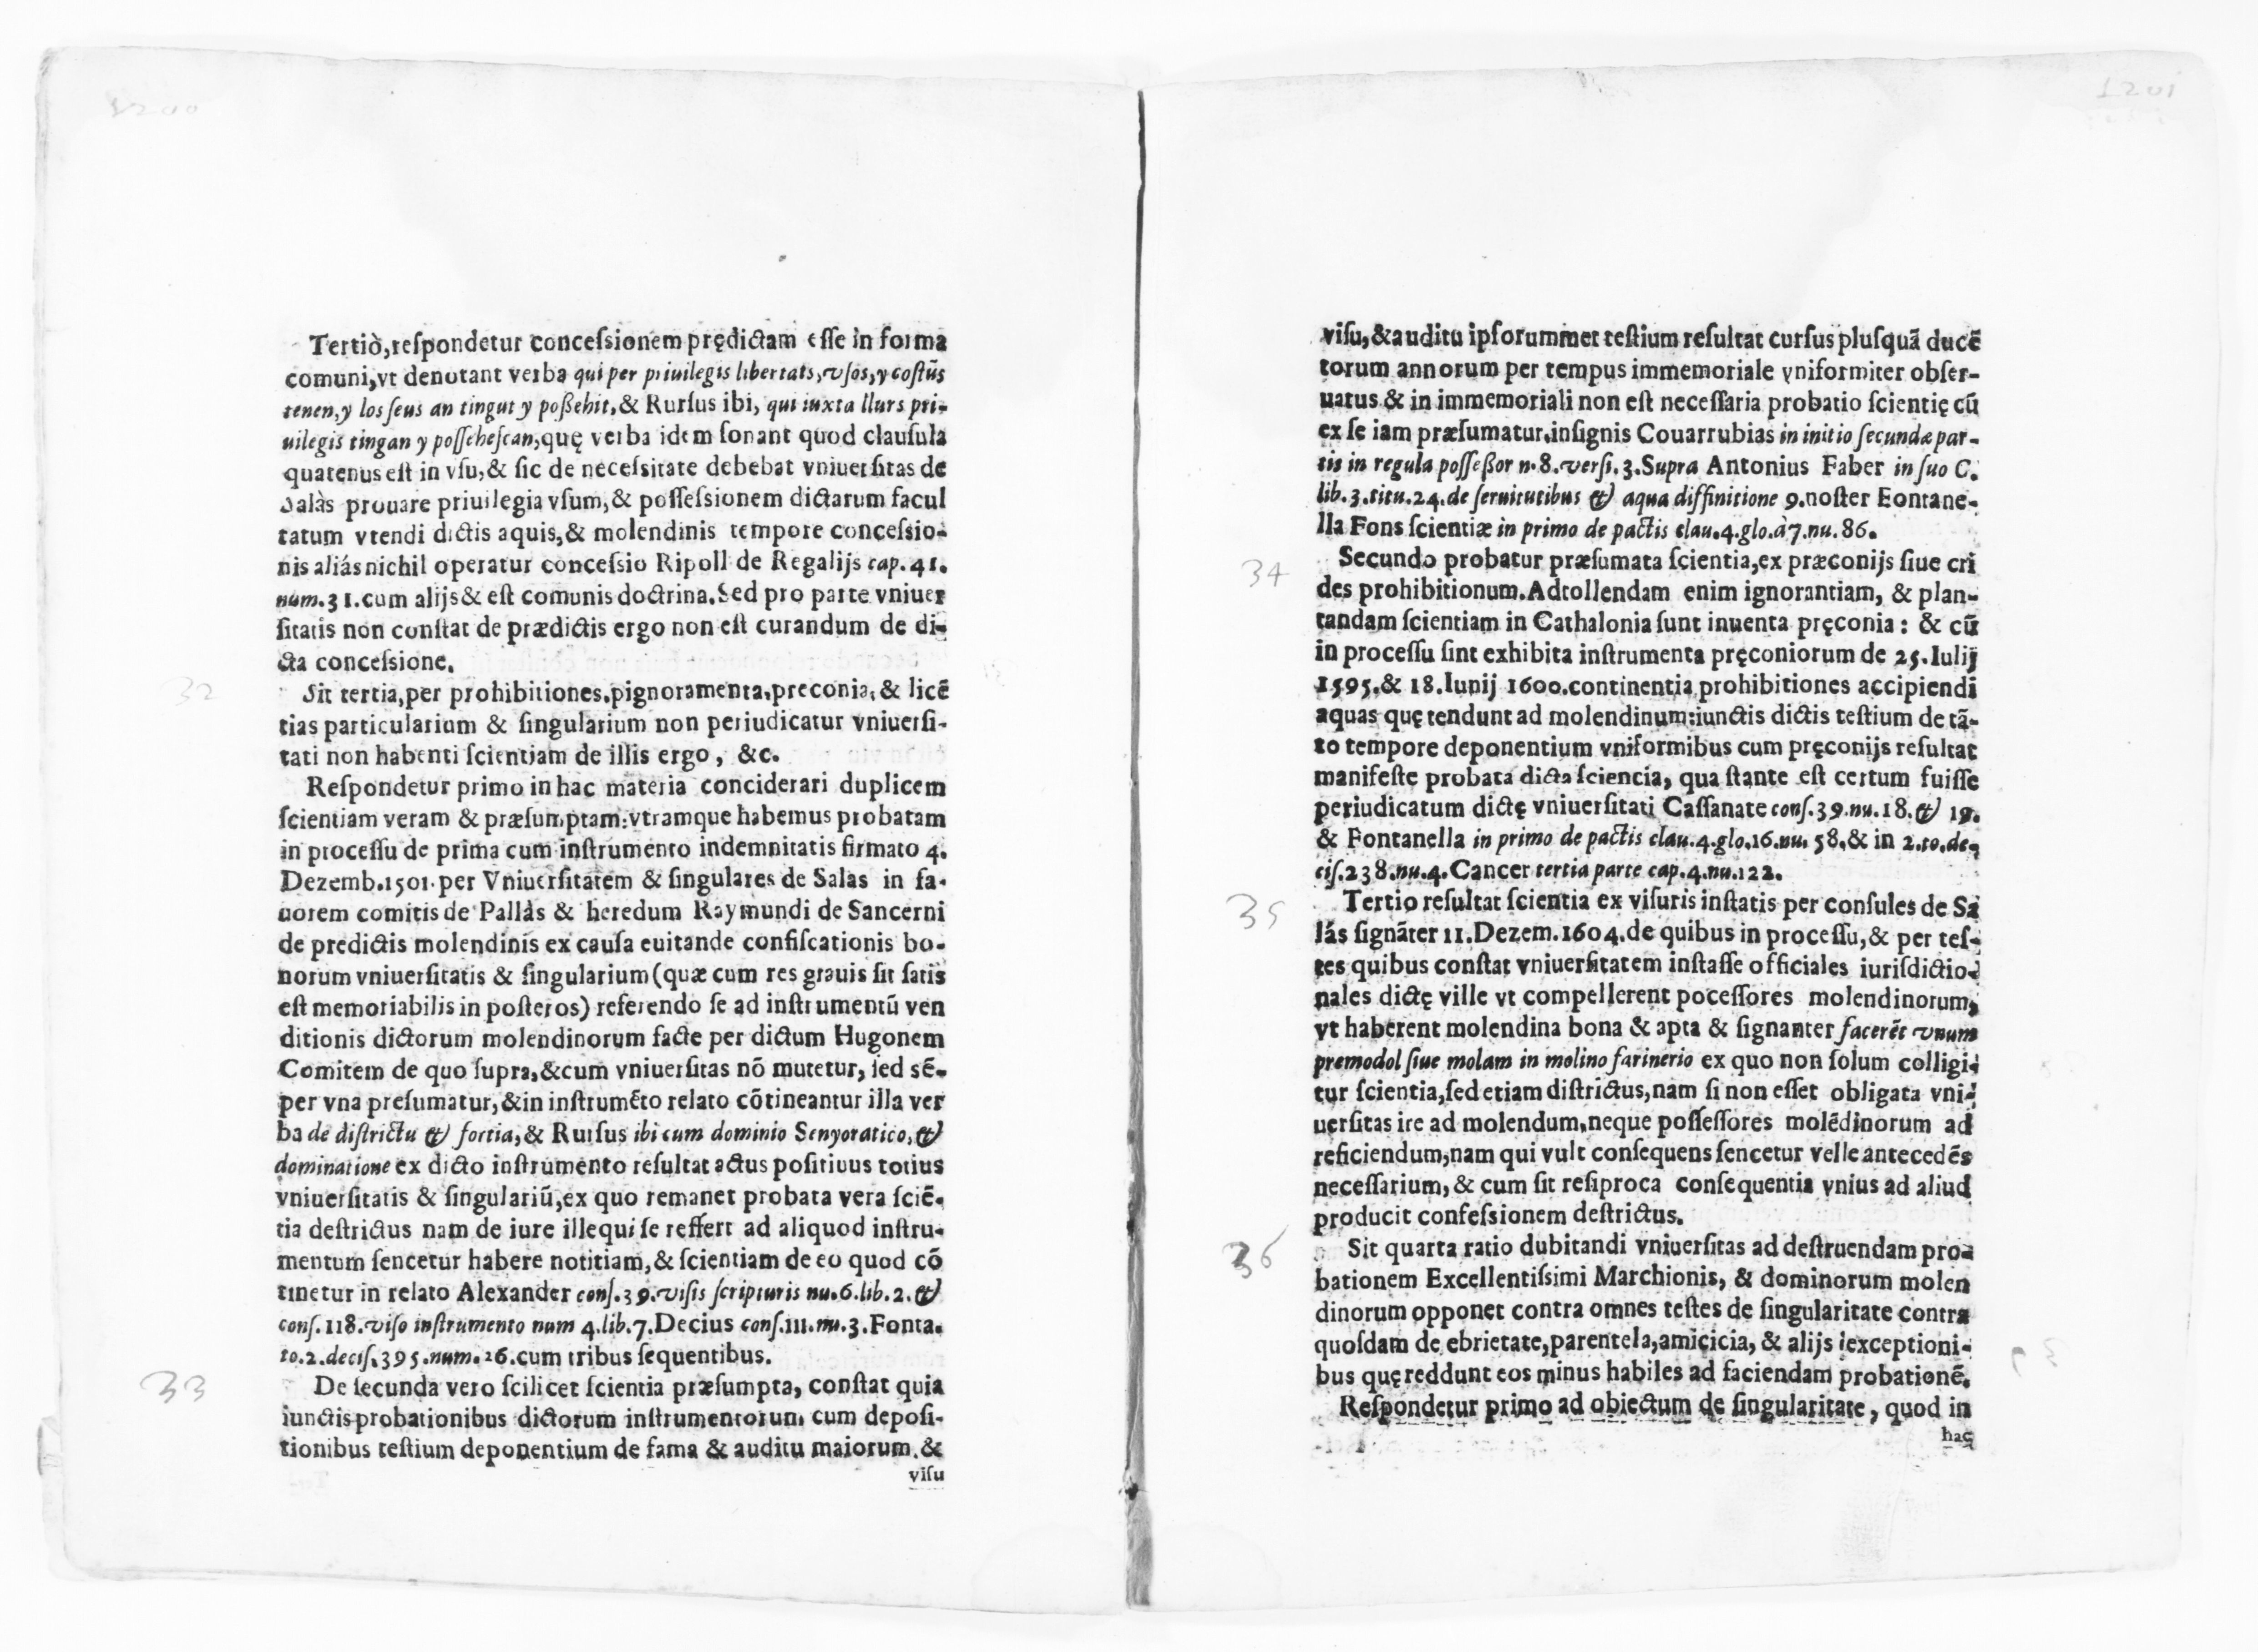 1200
Tertiò,reſpondetur conceſsionem prędictam eſſe in forma
comuni,vt denotant verba qui per priuilegis libertats,vſos,y coſtũs
tenen,y los ſeus an tingut y poßehit,& Rurſus ibi, qui iuxta llurs pri-
uilegis tingan y poſſeheſcan,quę verba idem ſonant quod clauſula
quatenus eſt in vſu,& ſic de neceſsitate debebat vniuerſitas de
Salàs prouare priuilegia vſum,& poſſeſsionem dictarum facul
tatum vtendi dictis aquis,& molendinis tempore conceſsio-
nis aliás nichil operatur conceſsio Ripoll de Regalijs cap.41.
num.31.cum alijs & eſt comunis doctrina.Sed pro parte vniuer
ſitatis non conſtat de prædictis ergo non eſt curandum de di-
cta conceſsione.
32
Sit tertia,per prohibitiones,pignoramenta,preconia,& licẽ
tias particularium & ſingularium non periudicatur vniuerſi-
tati non habenti ſcientiam de illis ergo, &c.
Reſpondetur primo in hac materia conciderari duplicem
ſcientiam veram & præſumptam:vtramque habemus probatam
in proceſſu de prima cum inſtrumento indemnitatis firmato 4.
Dezemb.1501.per Vniuerſitatem & ſingulares de Salas in fa-
uorem comitis de Pallàs & heredum Raymundi de Sancerni
de predictis molendinis ex cauſa euitande confiſcationis bo-
norum vniuerſitatis & ſingularium (quæ cum res grauis ſit ſatis
eſt memoriabilis in poſteros) referendo ſe ad inſtrumentũ ven
ditionis dictorum molendinorum facte per dictum Hugonem
Comitem de quo ſupra,&cum vniuerſitas nõ mutetur, ſed sẽ-
per vna preſumatur,&in inſtrumẽto relato cõtineantur illa ver
ba de diſtrictu & fortia,& Rurſus ibi cum dominio Senyoratico,&
dominatione ex dicto inſtrumento reſultat actus poſitiuus totius
vniuerſitatis & ſingulariũ,ex quo remanet probata vera ſciẽ-
tia deſtrictus nam de iure illequi ſe reffert ad aliquod inſtru-
mentum ſencetur habere notitiam,& ſcientiam de eo quod cõ
tinetur in relato Alexander conſ.39.viſis ſcripturis nu.6.lib.2.&
conſ.118.viſo inſtrumento num 4.lib.7.Decius conſ.111.nu.3.Fonta.
to.2.deciſ.395.num.26.cum tribus ſequentibus.
33
De ſecunda vero ſcilicet ſcientia præſumpta, conſtat quia
iunctis probationibus dictorum inſtrumentorum cum depoſi-
tionibus teſtium deponentium de fama & auditu maiorum.&
viſu
1201
viſu,&auditu ipſorummet teſtium reſultat curſus pluſquã ducẽ
torum annorum per tempus immemoriale vniformiter obſer-
uatus & in immemoriali non eſt neceſſaria probatio ſcientię cũ
ex ſe iam præſumatur,inſignis Couarrubias in initio ſecundæ par-
tis in regula poſſeßor n.8.verſi.3.Supra Antonius Faber in ſuo C.
lib.3.titu.24.de ſeruitutibus & aqua diffinitione 9.noſter Eontane-
lla Fons ſcientiæ in primo de pactis clau.4.glo.à7.nu.86.
34
Secundo probatur præſumata ſcientia,ex præconijs ſiue cri
des prohibitionum.Adtollendam enim ignorantiam, & plan-
tandam ſcientiam in Cathalonia ſunt inuenta pręconia: & cũ
in proceſſu ſint exhibita inſtrumenta pręconiorum de 25.Iulij
1595.& 18.Iunij 1600.continentia prohibitiones accipiendi
aquas quę tendunt ad molendinum:iunctis dictis teſtium de tã-
to tempore deponentium vniformibus cum pręconijs reſultat
manifeſte probata dicta ſciencia, qua ſtante eſt certum fuiſſe
periudicatum dictę vniuerſitati Caſſanate conſ.39.nu.18.& 19.
& Fontanella in primo de pactis clau.4.glo.16.nu.58,& in 2.to.de-
ciſ.238.nu.4.Cancer tertia parte cap.4.nu.122.
35
Tertio reſultat ſcientia ex viſuris inſtatis per conſules de Sa
lás ſignãter 11.Dezem.1604.de quibus in proceſſu,& per teſ-
tes quibus conſtat vniuerſitatem inſtaſſe officiales iuriſdictio-
nales dictę ville vt compellerent poceſſores molendinorum,
vt haberent molendina bona & apta & ſignanter facerẽt vnum
premodol ſiue molam in molino farinerio ex quo non ſolum colligi-
tur ſcientia,ſed etiam diſtrictus,nam ſi non eſſet obligata vni-
uerſitas ire ad molendum,neque poſſeſſores molẽdinorum ad
reficiendum,nam qui vult conſequens ſencetur velle antecedẽs
neceſſarium,& cum ſit reſiproca conſequentia vnius ad aliud
producit confeſsionem deſtrictus.
36
Sit quarta ratio dubitandi vniuerſitas ad deſtruendam pro-
bationem Excellentiſsimi Marchionis, & dominorum molen
dinorum opponet contra omnes teſtes de ſingularitate contra
quoſdam de ebrietate,parentela,amicicia, & alijs exceptioni-
bus quę reddunt eos minus habiles ad faciendam probationẽ.
Reſpondetur primo ad obiectum de ſingularitate, quod in
hac